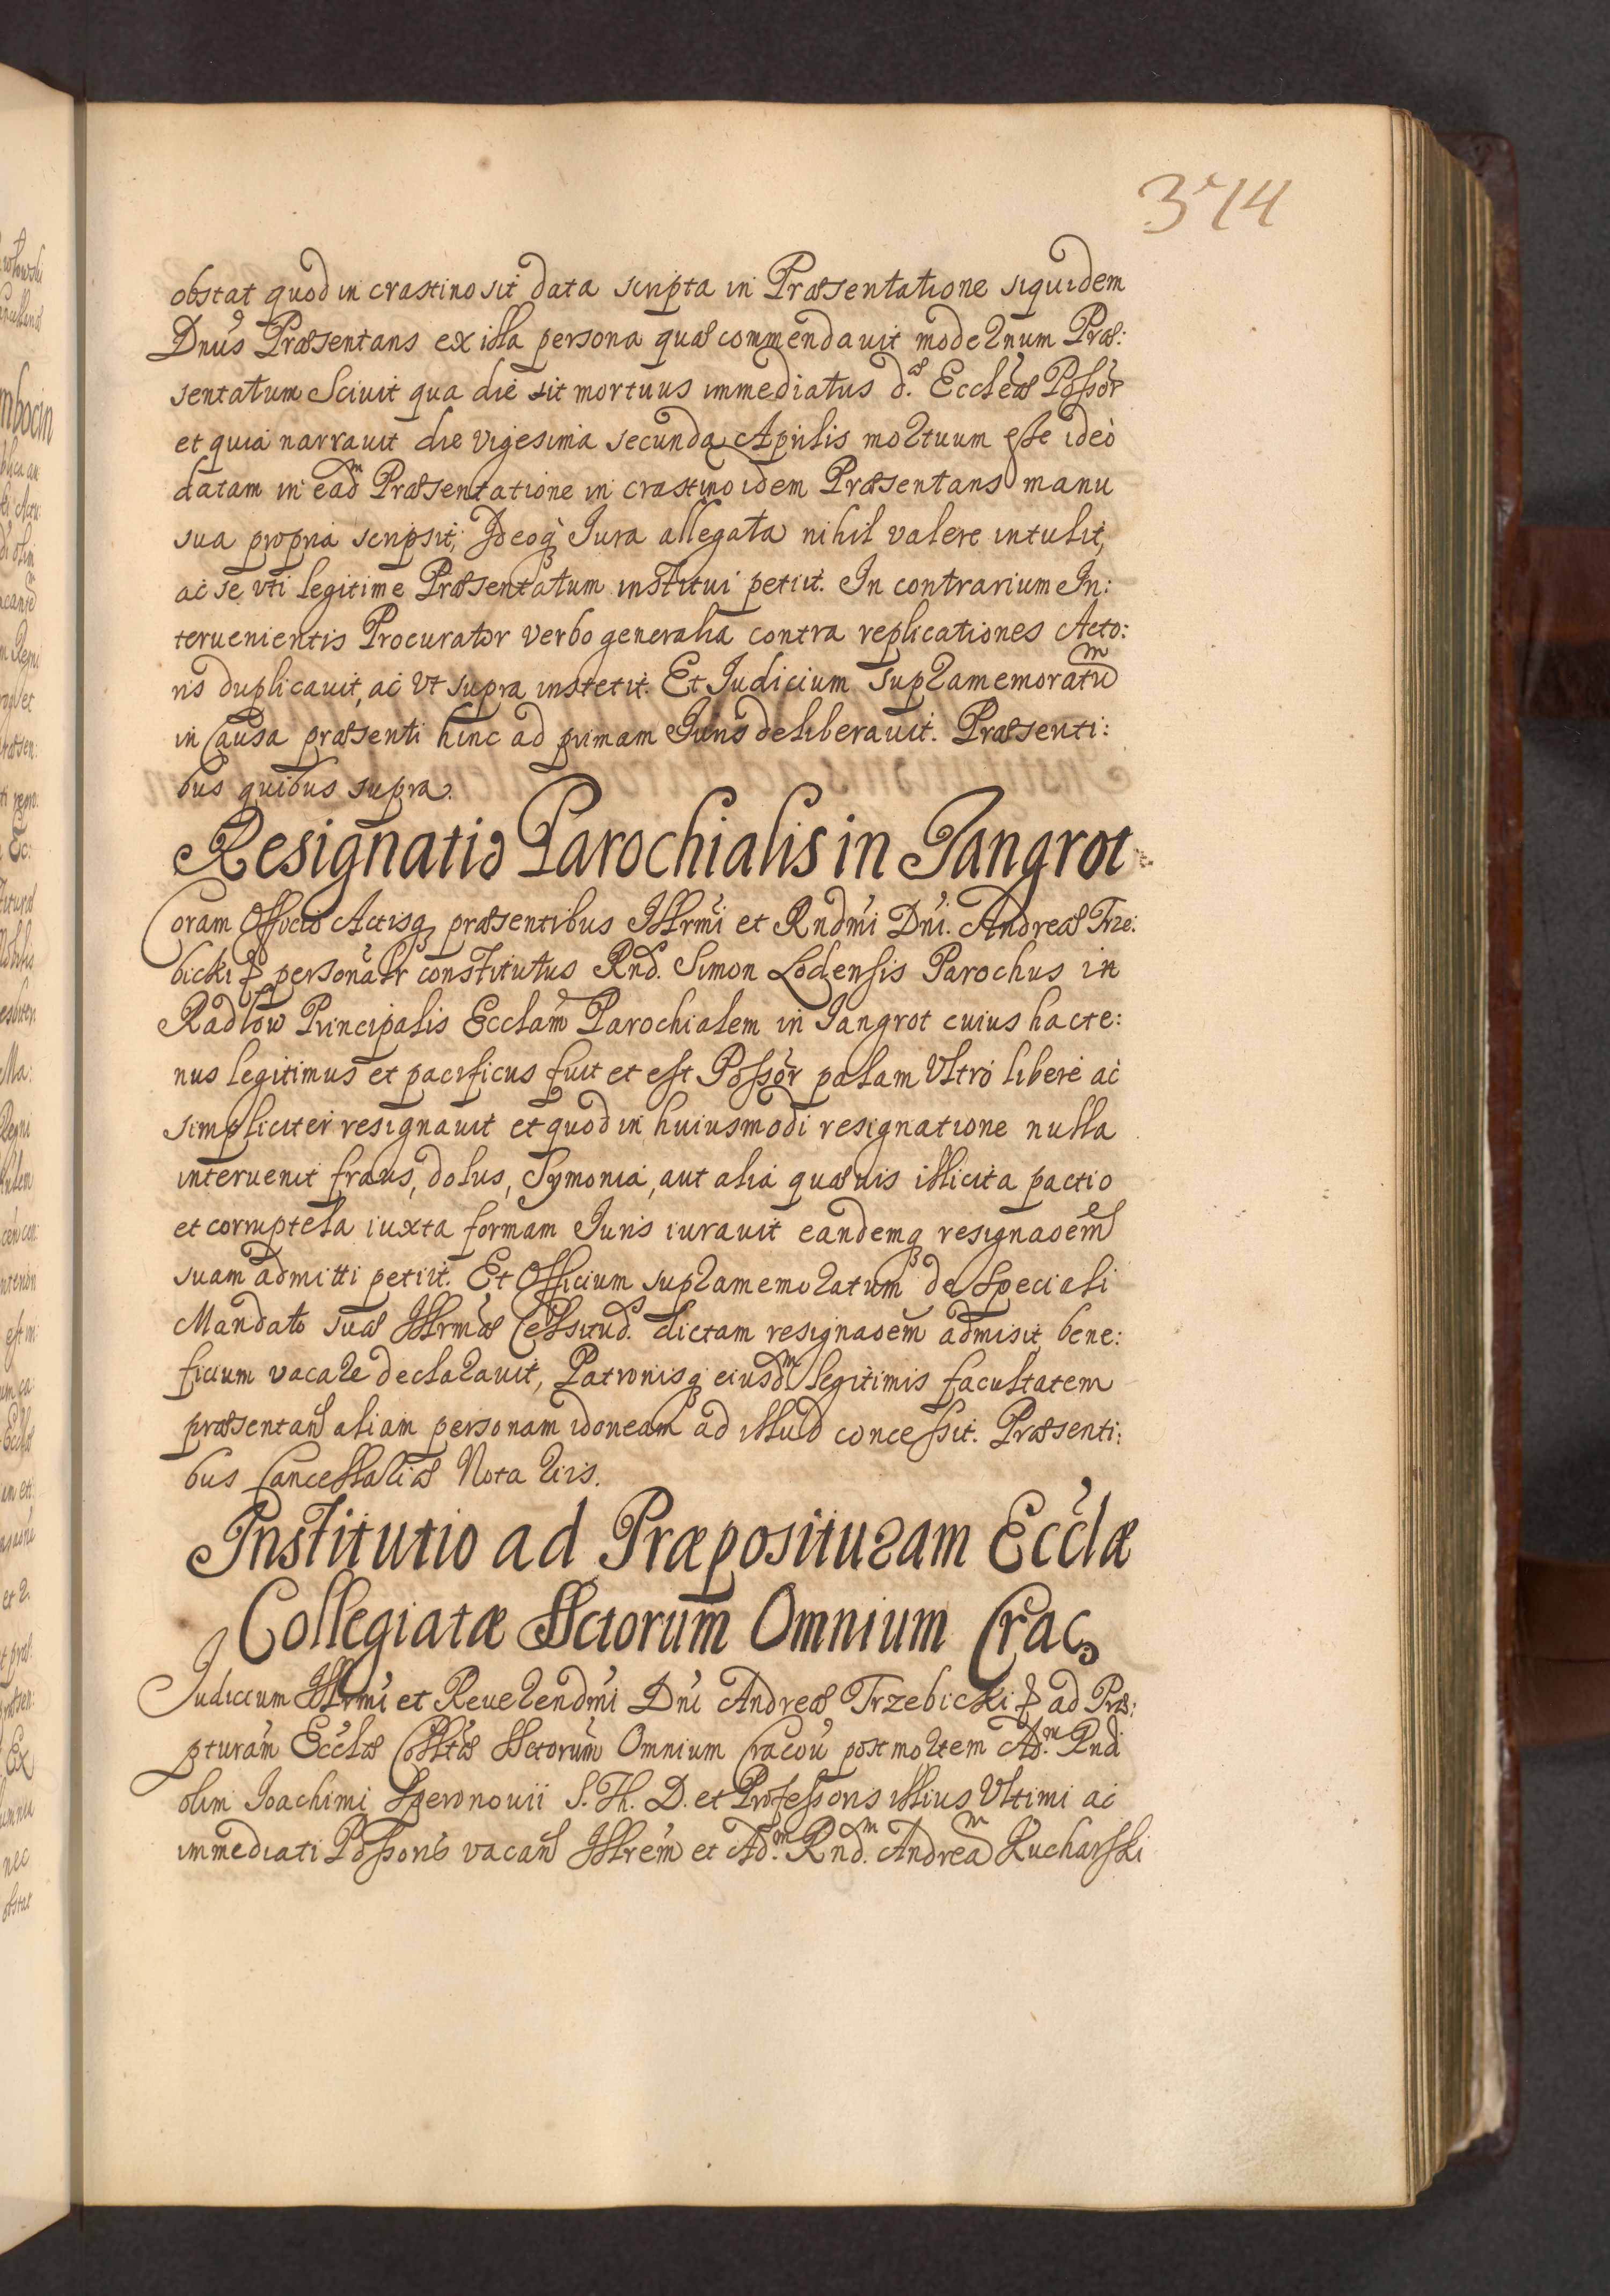 374
obstat quod in crastino sit data scripta in Præsentatione siquidem
Dnūs Præsentans ex illa persona quæ commendauit modernum Præ:
sentatum Sciuit qua die sit mortuus immediatus d.æ Eccl̃eæ Poss̃or
et quia narrauit die vigesima secunda Aprilis mortuum esse ideò
datam in ead.m Præsentatione in crastino idem Præsentans manu
sua propria scripsit, Ideoq́ Iura allegata nihil valere intulit,
ac se vti legitime Præsentatum institui petiit. In contrarium In:
teruenientis Procurator verbo generalia contra replicationes Acto:
ris duplicauit, ac vt supra institit. Et Iudicium supramemoratu.m
in Causa præsenti hinc ad primam Iuris deliberauit. Præsenti:
bus quibus supra.
Resignatio Parochialis in Jangrot
Coram Officio Actisq́ præsentibus Illr̃mi et Rndm̃i Dn̄i. Andreæ Trze:
bicki personalr̃ constitutus Rnd. Simon Lodensis Parochus in
Radłow Principalis Eccl̃am Parochialem in Jangrot cuius hacte:
nus legitimus et pacificus fuit et est Poss̃or palam Vltrò liberè ac
simpliciter resignauit et quod in huiusmodi resignatione nulla
interuenit fraus, dolus, Symonia, aut alia quæuis illicita pactio
et corruptela iuxta formam Iuris iurauit eandemq́ resignaõem
suam admitti petiit. Et Officium supramemoratum de speciali
Mandato suæ Illr̃mæ Celsitud. dictam resignaõem admisit, bene:
ficium vacare declarauit, Patronisq́ eiusd.m legitimis facultatem
præsentañ aliam personam idoneam ad illud concessit. Præsenti:
bus Cancellariæ Notariis.
Institutio ad Præposituram Eccl̃æ
Collegiatæ SSctorum Omnium Crac.
Iudicium Illr̃mi et Reuerendm̃i Dn̄i Andreæ Trzebicki ad Præ:
pturam̃ Eccl̃æ Colltæ SSctorum Omnium Cracoũ post mortem Ad.m Rndi
olim Joachimi Speronouii S. Th. D. et Professoris illius Vltimi ac
immediati Possoris vacañ Illr̃em et Ad.m Rnd.m Andrea.m Kucharski